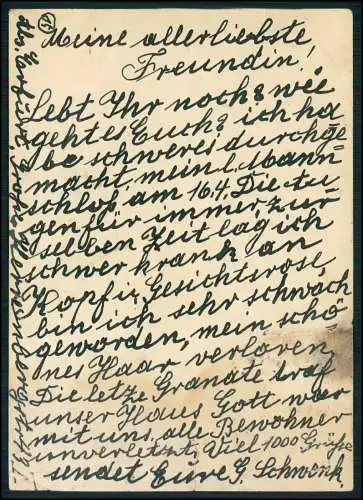 15
Meine allerliebste
Freundin!
Lebt Ihr noch? wie
geht es Euch? ich ha
be schweres durchge
macht, mein l. Mann
schloß am 16.4. Die Au
gen für immer, zur
selben Zeit lag ich
schwer krank an
Kopf u. Gesichtsrose,
bin ich sehr schwach
geworden, mein schö
nes Haar verloren
Die letze Granate traf
unser Haus Gott war
mit uns, alle Bewohner
unverletzt, Viel 1000 Grüße
sendet Eure G. Schwenk.